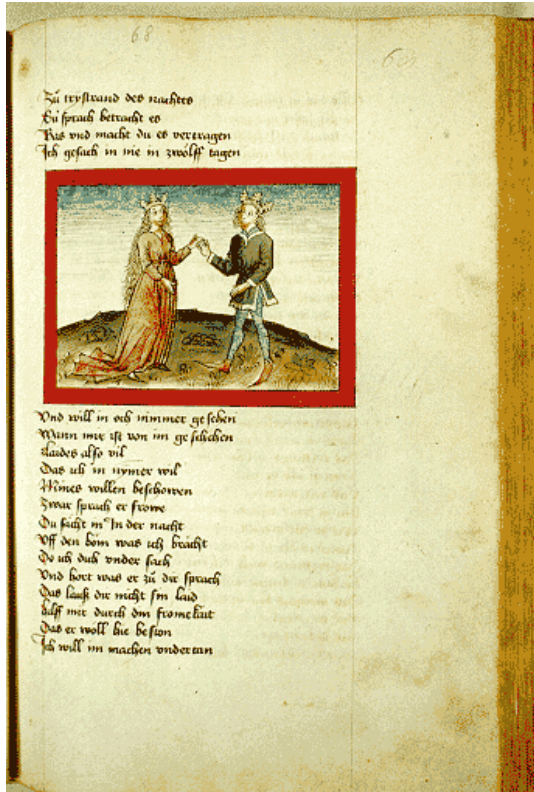 68
Zů trystrand des nachtes
Sů sprach betracht es
Kas vnd macht du es vertragen
Ich gesach in nie in zwölff tagen
Vnd will in och nimmer gesehen
Wann mir ist von im geschehen
Laides also vil
Das ich in nymer wil
Mines willen beschowen
Zwar sprach er frowe
Du sächt in In der nacht
Vff den bom was ich brächt
Do ich dich vnder sach
Vnd hort was er zů dir sprach
Das lauß dir nicht sin laid
hilff mir durch din fromekait
Das er wöll hie beston
Ich will im machen vndertan